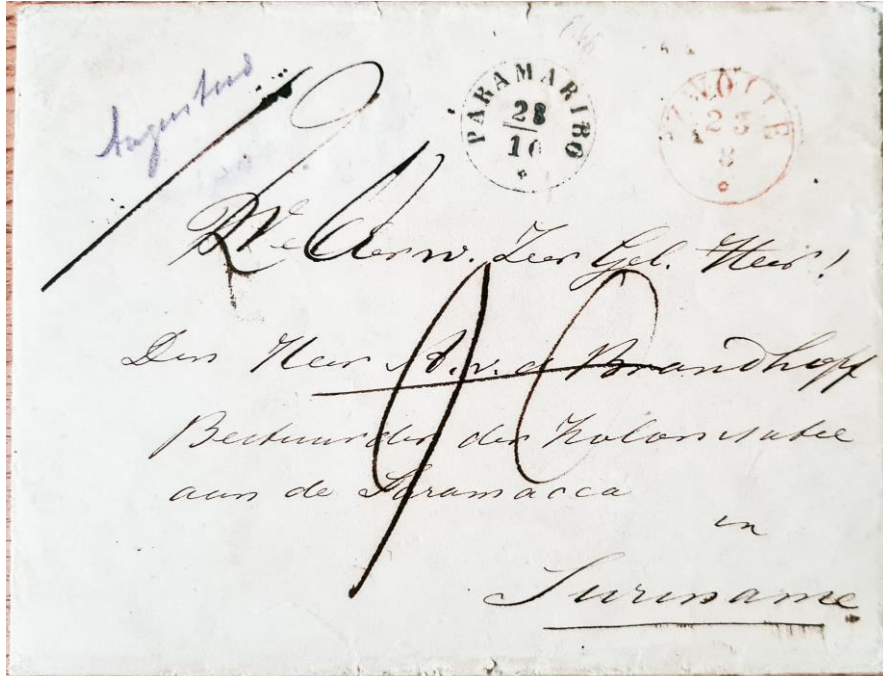 PARAMARIBO
28
10
ZWOLLE
23
8
WelEerw. Zeer Gel. Heer!
Den Heer A. v. d. Brandhoff
Bestuurder der Kolonisatie
aan de Saramacca
in
Suriname
90